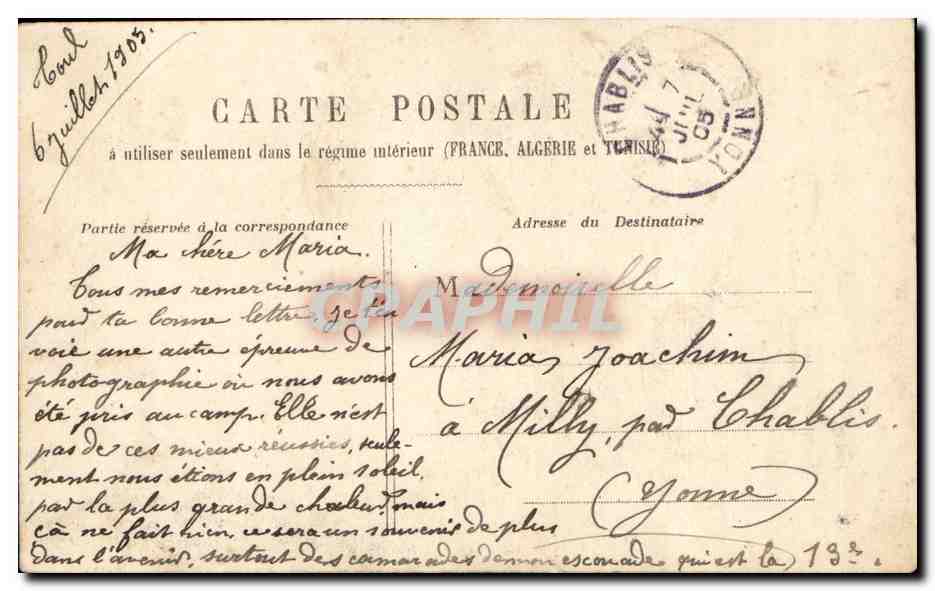 Toul
6 juillet 1905.
CARTE POSTALE
à utiliser seulement dans le régime intérieur (FRANCE, ALGÉRIE et TUNISIE)
CHABLIS
7
JUIL
05
YONNE
Partie réservée à la correspondance
Adresse du Destinataire
Ma chére Maria.
Tous mes remerciements
pour ta bonne lettre, je t'en
voie une autre épreuve de
photographie où nous avons
été pris au camp. Elle n'est
pas de ces mieux réussies, seule-
ment nous étions en plein soleil.
par la plus grande chaleur, mais
cà ne fait rien, ce sera un souvenir de plus
dans l'avenir, surtout des camarades de mon escouade qui est la 13e.
Mademoiselle
Maria Joachim
à Milly, par Chablis.
(Yonne)
CPAPHIL